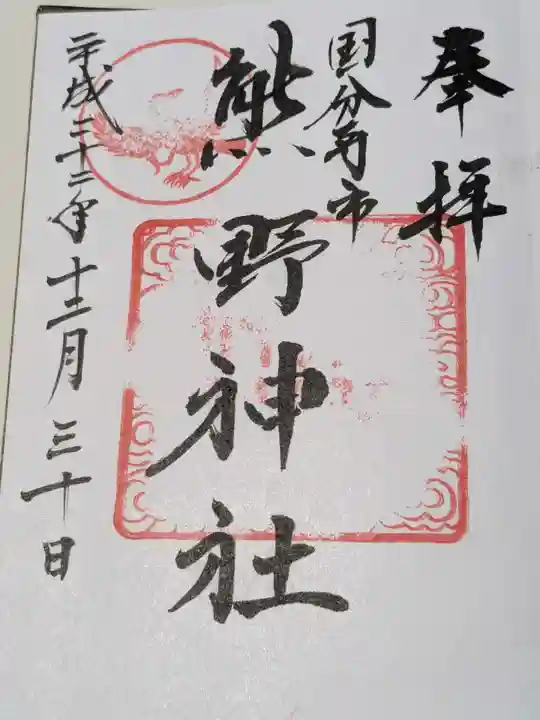 奉拝
国分寺市
熊野神社
平成二十二年十二月三十日